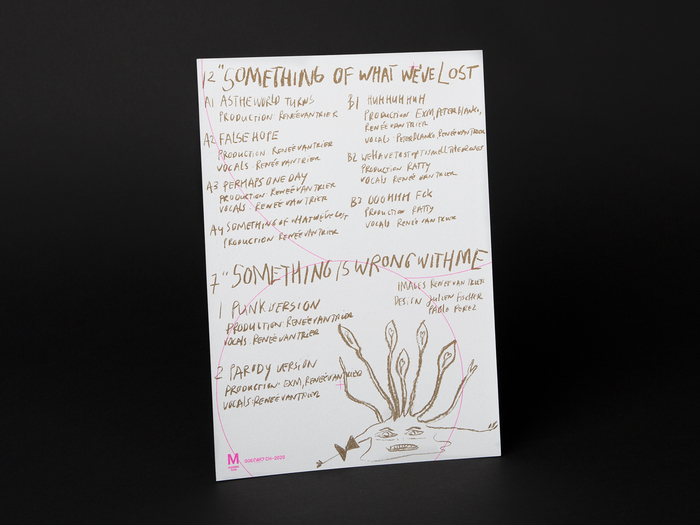 12" SOMETHING OF WHAT WE'VE LOST
A1 AS THE WORLD TURNS
PRODUCTION: RENÉE VAN TRIER
A2 FALSE HOPE
PRODUCTION RENÉE VAN TRIER
VOCALS RENÉE VAN TRIER
A3 PERHAPS ONE DAY
PRODUCTION: RENÉE VAN TRIER
VOCALS RENÉE VAN TRIER
A4 SOMETHING OF WHAT WE'VE LOST
PRODUCTION RENÉE VAN TRIER
B1 HUHHUHHUH
PRODUCTION EXM, PETER BLANKO,
RENÉE VAN TRIER
VOCALS PETER BLANKO, RENÉE VAN TRIER
B2 WE HAVE TO STOP TO SMELL THE
PRODUCTION RATTY
VOCALS RENÉE VAN TRIER
B3 OOOHHH FCK
PRODUCTION RATTY
VOCALS RENÉE VAN TRIER
7" SOMETHING IS WRONG WITH ME
IMAGES RENÉE VAN TRIER
DESIGN JULIEN FISCHER
PABLO PEREZ
1 PUNK VERSION
PRODUCTION: RENÉE VAN TRIER
VOCALS: RENÉE VAN TRIER
2 PARODY VERSION
PRODUCTION: EXM, RENÉE VAN TRIER
VOCALS: RENÉE VAN TRIER
M